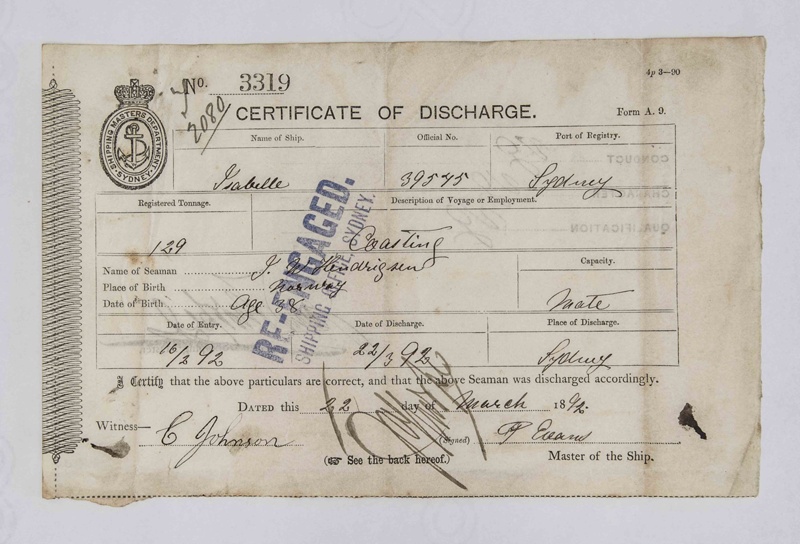 4p 3—90
No. 3319
2080
CERTIFICATE OF DISCHARGE.
Form A. 9.
SHIPPING MASTERS DEPARTMENT
SYDNEY
Name of Ship. Official No. Port of Registry.
Isabelle 39545 Sydney
Registered Tonnage. Description of Voyage or Employment.
129 Coasting
RE-ENGAGED.
SHIPPING OFFICE, SYDNEY.
Name of Seaman J. W Hendrigsen Capacity.
Place of Birth Norway
Date of Birth Age 38 Mate
Date of Entry. Date of Discharge. Place of Discharge.
16/2 92 22/3 92 Sydney
Certify that the above particulars are correct, and that the above Seaman was discharged accordingly.
DATED this 22 day of March 1892.
Witness— C Johnson (Signed) T Evans
(☞ See the back hereof.) Master of the Ship.
CONDUCT
CHARACTER
QUALIFICATION